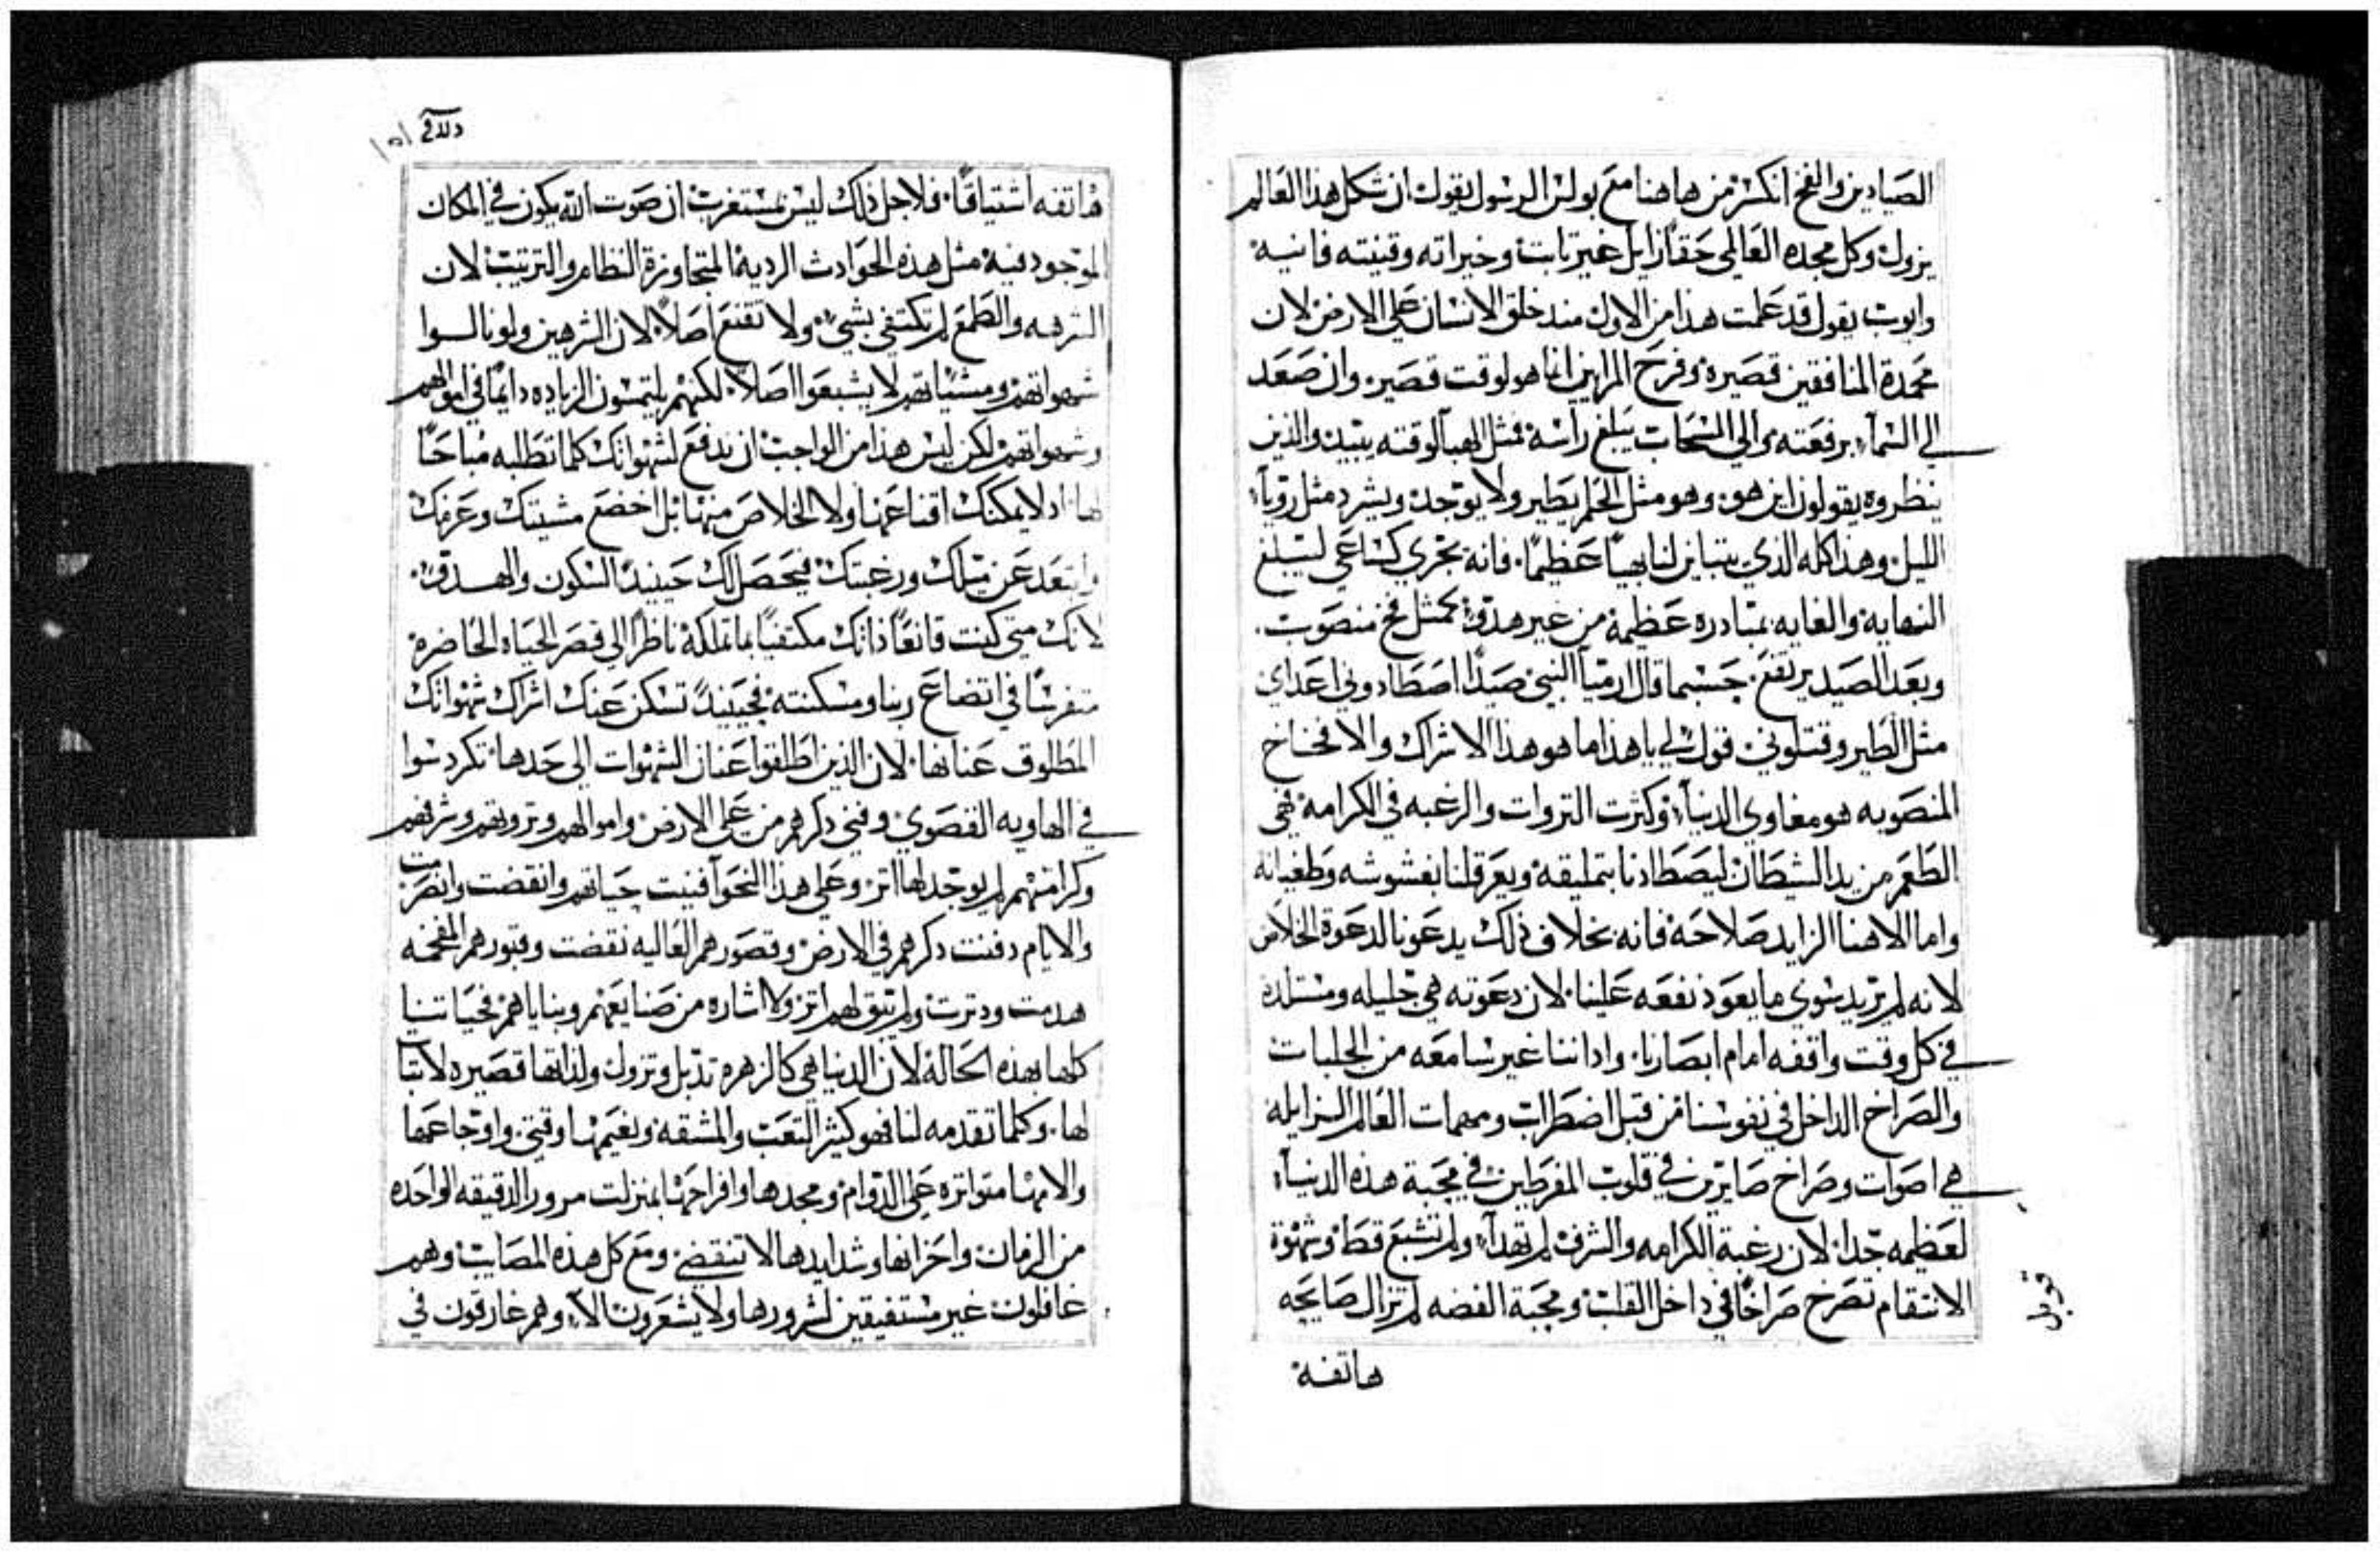 الصيادين والفخ انكسر من هاهنا مع بولس الرسول يقول ان شكل هذا العالم
يزول وكل مجده العالمي حقا زايل غير ثابت وخيراته وقنيته فانيه
وايوب يقول قد علمت هذا من الاول مند خلق الانسان على الارض لان
محمدة المنافقين قصيره وفرح المرايين انما هو لوقت قصير وان صعد
الي السمآء برفعته والي السحاب يبلغ راسه فمثل الهبآ لوقته يبيد والذين
ينظروه يقولون اين هو وهو مثل الحلم يطير ولا يوجد ويشرد مثل روياء
الليل وهذا كله الذي يتباين لنا بهيا عظيما فانه يجري كساعي ليبلغ
النهايه والغايه بمبادره عظيمة من غير هدؤ كمثل فخ منصوب
وبعد الصيد يرتفع حسبما قال ارميا النبي صيدا اصطادوني اعداي
مثل الطير وقتلوني قول لي يا هذا ما هو هذا الاشراك والافخاخ
المنصوبه هو مغاوي الدنياء وكثرت التروات والرغبه في الكرامة فهي
الطعم من يد الشيطان ليصطادنا بتمليقه ويعرقلنا بغشوشه وطغيانه
واما الاهنا الزايد صلاحه فانه بخلاف ذلك يدعونا لدعوة الخلاص
لانه لم يريد سوي ما يعود نفعه علينا لان دعوته هي جليله ومستلده
في كل وقت واقفه امام ابصارنا واداننا غير سامعه من الجلبات
والصراخ الداخل في نفوسنا من قبل اضطرابات ومهمات العالم الزايله
هي اصوات وصراخ صايرين في قلوب المفرطين في محبة هذه الدنياء
لعظيمه جدا لان رغبة الكرامه والشرف لم تهدآء ولم تشبع قط وشهوة
الانتقام تصرخ صراخا في داخل القلب ومحبة الفضه لم تزال صايحه
هاتفة
هاتفه اشتياقا فلاجل ذلك ليس بمستغرب ان صوت الله يكون في المكان
الموجود فيه مثل هذه الحوادث الرديه المتجاوزة النظام والترتيب لان
الشره والطمع لم تكتفي بشيء ولا تقنع اصلا لان الشرهين ولو نالوا
شهواتهم ومشياتهم لا يشبعوا اصلا لكنهم يلتمسون الزياده دايما في اموالهم
وشهواتهم لكن ليس هذا من الواجب ان تدفع لشهواتك كلما تطلبه مباحا
لها اد لا يمكنك اقناعها ولا الخلاص منها بل اخضع مشيتك وعزمك
وابتعد عن ميلك ورغبتك فيحصل لك حينيد السكون والهدؤ
لانك متي كنت قانعا ذاتك مكتفيا بما تملكه ناظرا الي قصر الحياه الحاضرة
متفرسا في اتضاع ربنا ومسكنته فحينيد تسكن عنك اشراك شهواتك
المطلوق عنانها لان الذين اطلقوا عنان الشهوات الى حدها تكردسوا
في الهاويه القصوي وفني دكرهم من على الارض واموالهم وتروتهم وشرفهم
وكرامتهم لم يوجد لها اتر وعلى هذا النحو افنيت حياتهم وانقضت وانصرمت
والايام دفنت دكرهم في الارض وقصورهم العاليه نقضت وقبورهم المفخمه
هدمت ودترت ولم تبق لهم اتر ولا اشاره من صنايعهم وبناياهم فحياتنا
كلها بهذه الحالة لان الدنيا هي كالزهره تدبل وتزول ولذاتها قصيره لا تبات
لها وكلما تقدمه لنا فهو كثير التعب والمشقه ونعيمها وقتي واوجاعها
والامها متواتره على الدوام ومجدها وافراحها بمنزلت مرور الدقيقه الواحده
من الزمان واحزانها وشدايدها لا تنقضي ومع كل هذه المصايب وهم
غافلون غير مستفيقين لشرورها ولا يشعرون الآ وهم غارقون في